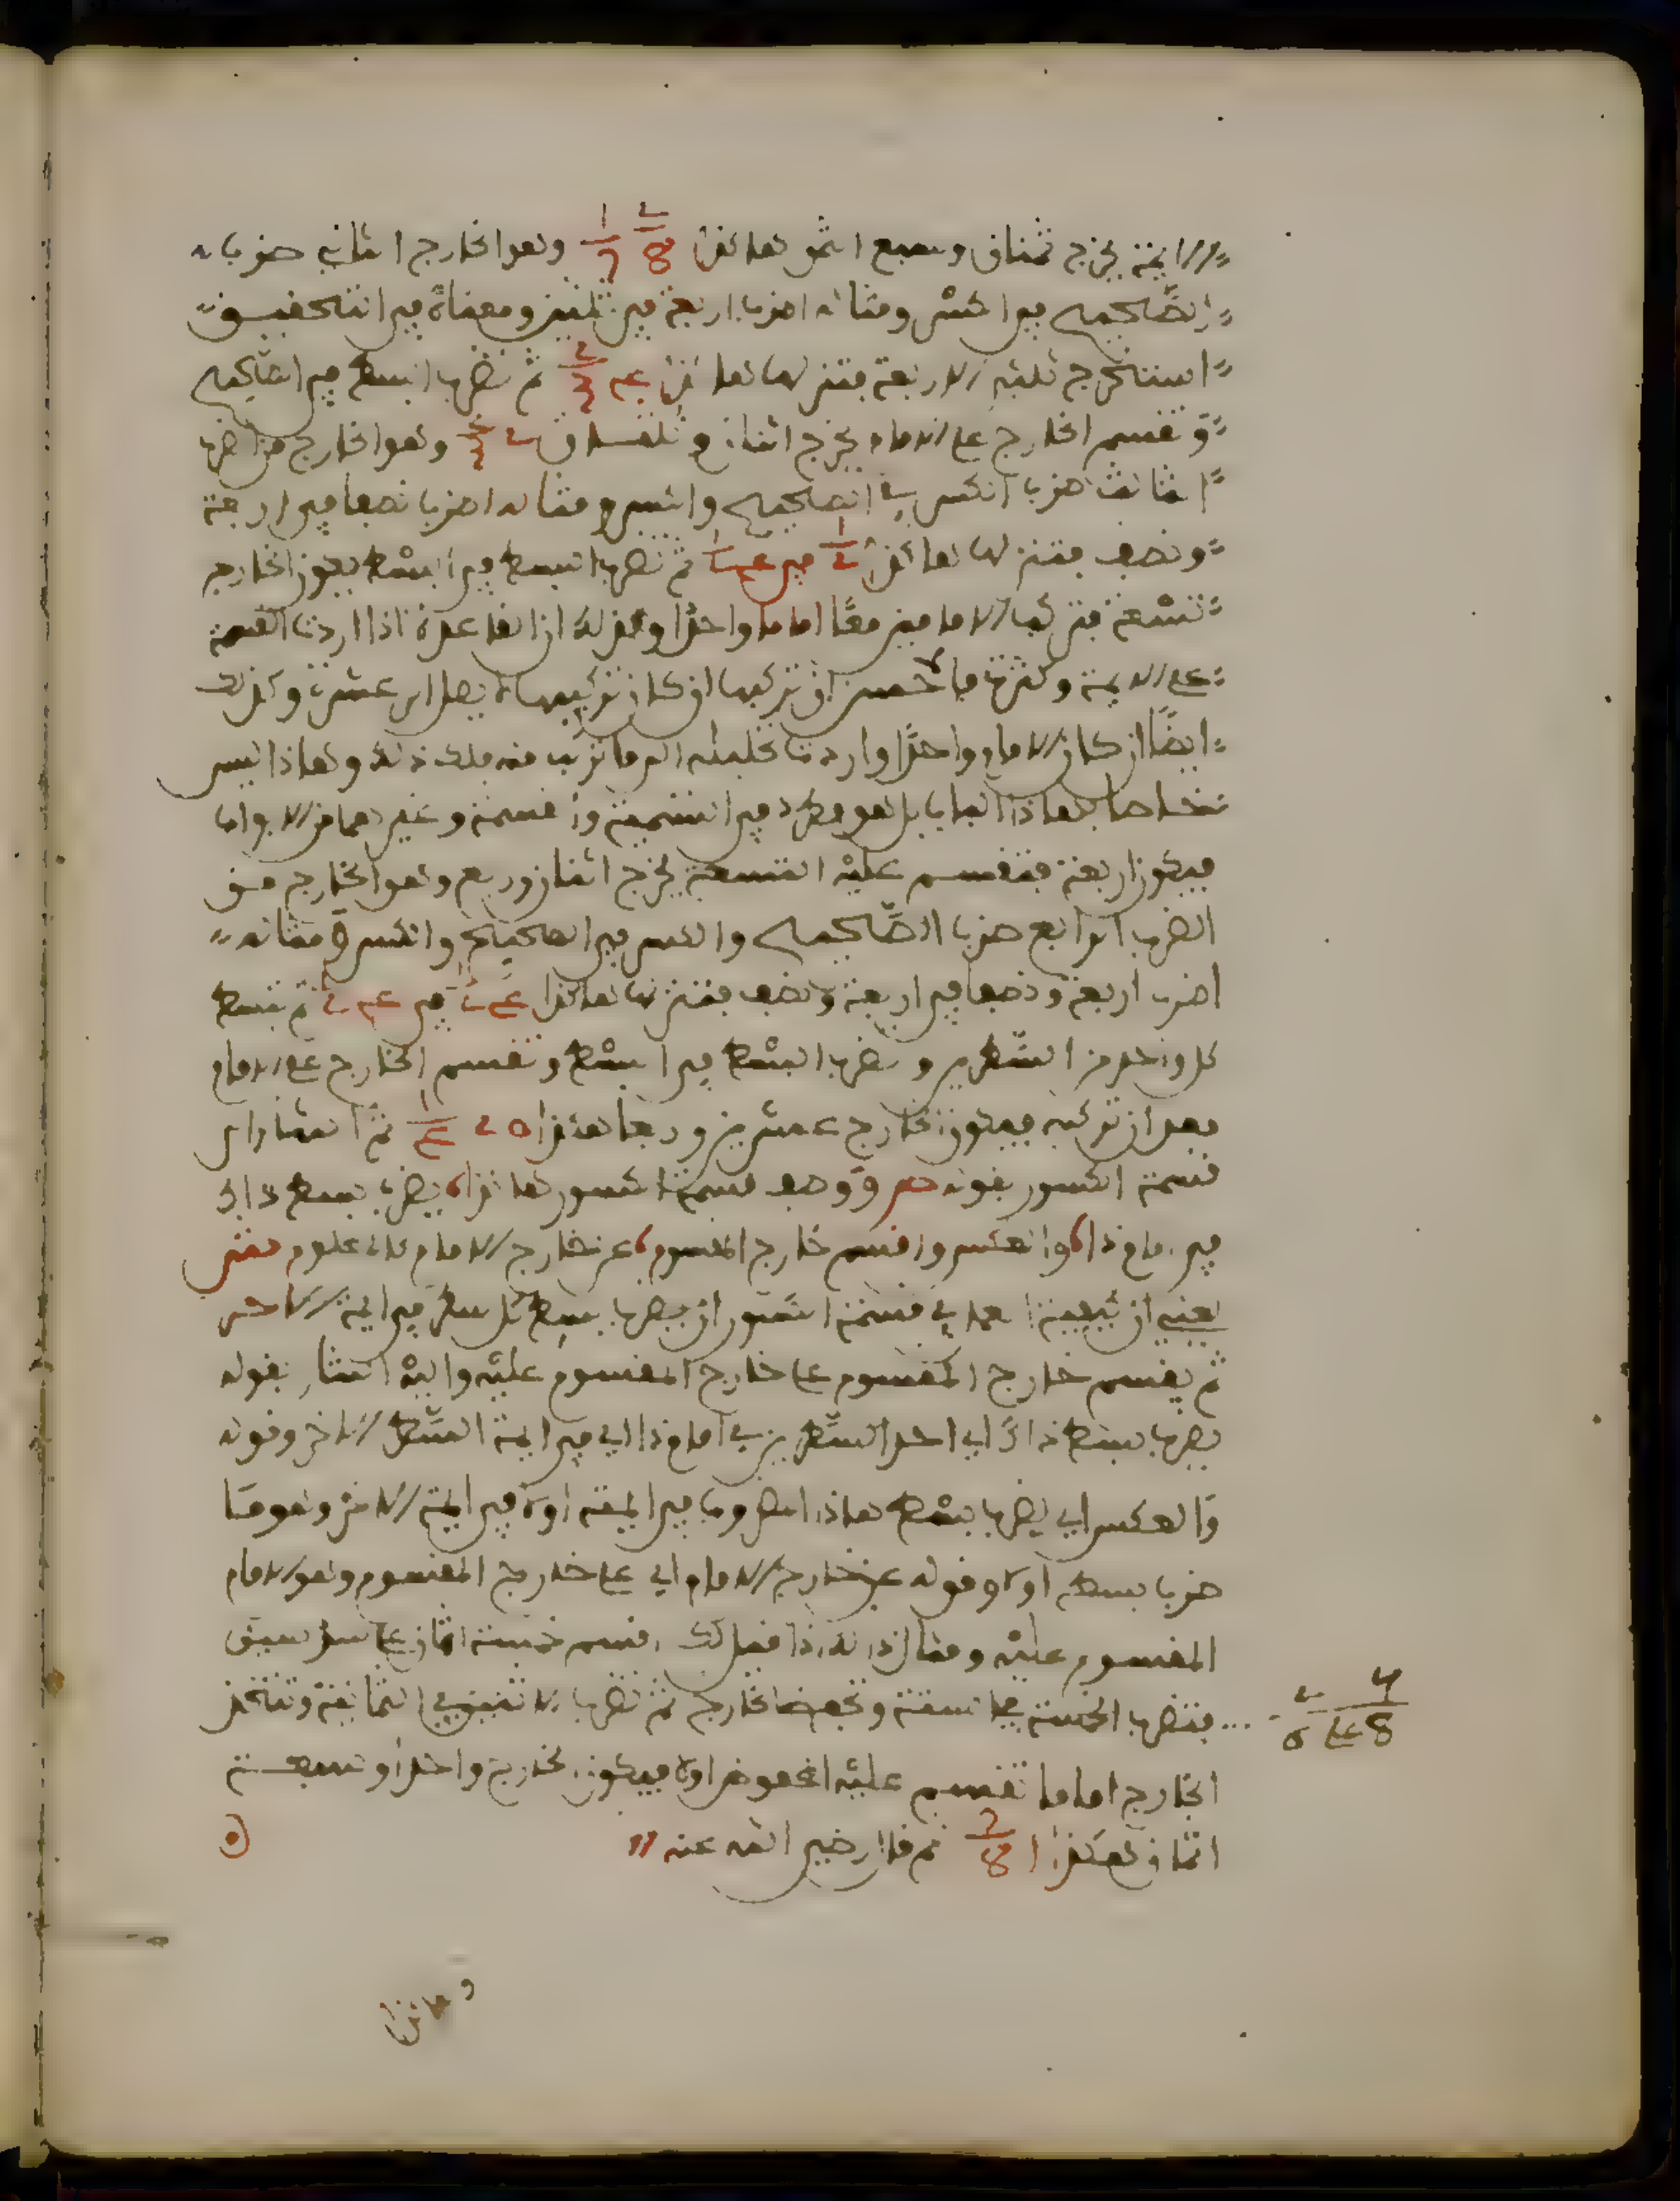 الايمة يخرج ثمنان وسبع الثمن هاكذا 1/7 2/8 وهو الخارج الثاني ضرب
الصحيح في الكسر ومثاله اضرب اربعة في ثلثين ومعناه في التحقيق
استخرج ثلثي الاربعة فتنزلها هاكذا 4 2/3 ثم تضرب البسط في الصحيح
وتقسم الخارج على الامام يخرج اثنان وثلثان 2 2/3 وهو الخارج من الضرب
الثالث ضرب الكسر في الصحيح والكسر ومثاله اضرب نصفا في اربعة
ونصف فتنزلها هاكذا 1/2 في 4 1/2 ثم تضرب البسط في البسط يكون الخارج
تسعة فتركب الامامين معا اماما واحدا وكذلك ان القاعدة اذا اردت القسمة
على الايمة وكثرتها فالاحسن ان تركبها ان كان تركيبها لا يصل الى عشرة وكذلك
ايضا ان كان الامام واحدا واردت تحليله الى ما تركب منه فلك ذلك وهاذا ليس
خاصا بهاذا الباب بل هو مطرد في التسمية والقسمة وغيرهما من الابواب
فيكون اربعة فتقسم عليه التسعة يخرج اثنان وربع وهو الخارج من
الضرب الرابع ضرب الصحيح والكسر في الصحيح والكسر ومثاله
اضرب اربعة ونصفا في اربعة ونصف فتنزلها هاكذا 4 1/2 في 4 1/2 ثم تبسط
كل واحد من السطرين وتضرب البسط في البسط وتقسم الخارج على الامام
بعد ان تركبه فيكون الخارج عشرين وربعا هاكذا 20 1/4 ثم اشار الى
قسمة الكسور بقوله ووصف قسمة الكسور هاكذا يضرب بسط ذاك
في امام ذا والعكس واقسم خارج المقسوم عن خارج الامام
يعني ان كيفية العمل في قسمة الكسور ان يضرب بسط كل سطر في ايمة الاخر
ثم يقسم خارج المقسوم على خارج المقسوم عليه واليه اشار بقوله
يضرب بسط ذاك اي احد السطرين في امام ذا اي في ايمة السطر الاخر وقوله
والعكس اي يضرب بسط هاذا المضروب في ايمته اولا في ايمة الاخر وهو
ضرب بسطه اولا وقوله عن خارج الامام اي على خارج المقسوم وهو الامام
المقسوم عليه ومثال ذلك اذا قيل لك اقسم خمسة اثمان على
فتضرب الخمسة في ستة وتحفظ الخارج ثم تضرب الاثنين في الثمانية وتتخذ
الخارج اماما تقسم عليه المحفوظ اولا فيكون الخارج واحدا وسبعة
اثمان هكذا 1 7/8 ثم قال رضي الله عنه
وهاكذا